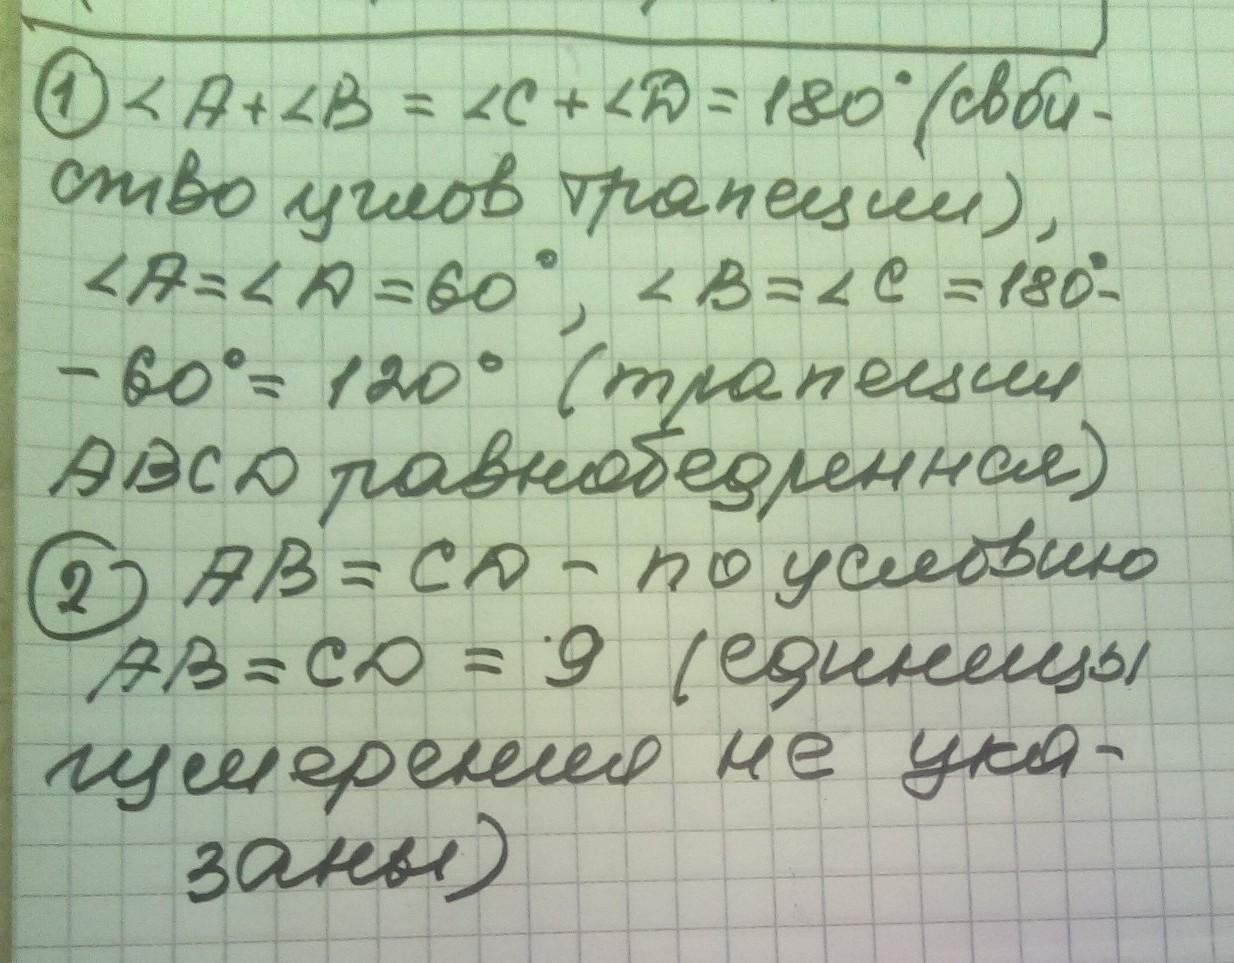 ① ∠A+∠B = ∠C+∠D = 180° (свой-
ство углов трапеции),
∠A = ∠D = 60°, ∠B = ∠C = 180°-
- 60° = 120° (трапеция
ABCD равнобедренная)
② AB = CD - по условию
AB = CD = 9 (единицы
измерения не ука-
заны)